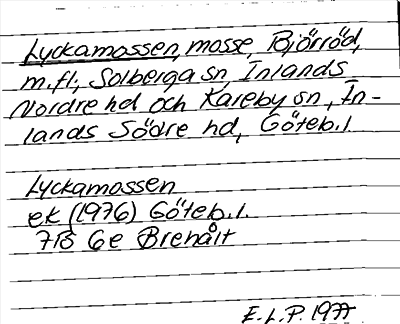 Lyckamossen, mosse, Björröd,
m.fl., Solberga sn, Inlands
Nordre hd och Kareby sn, In-
lands Södre hd, Göteb.l.
Lyckamossen
ek (1976) Göteb.l.
7B 6e Brehålt
E.L.P. 1977